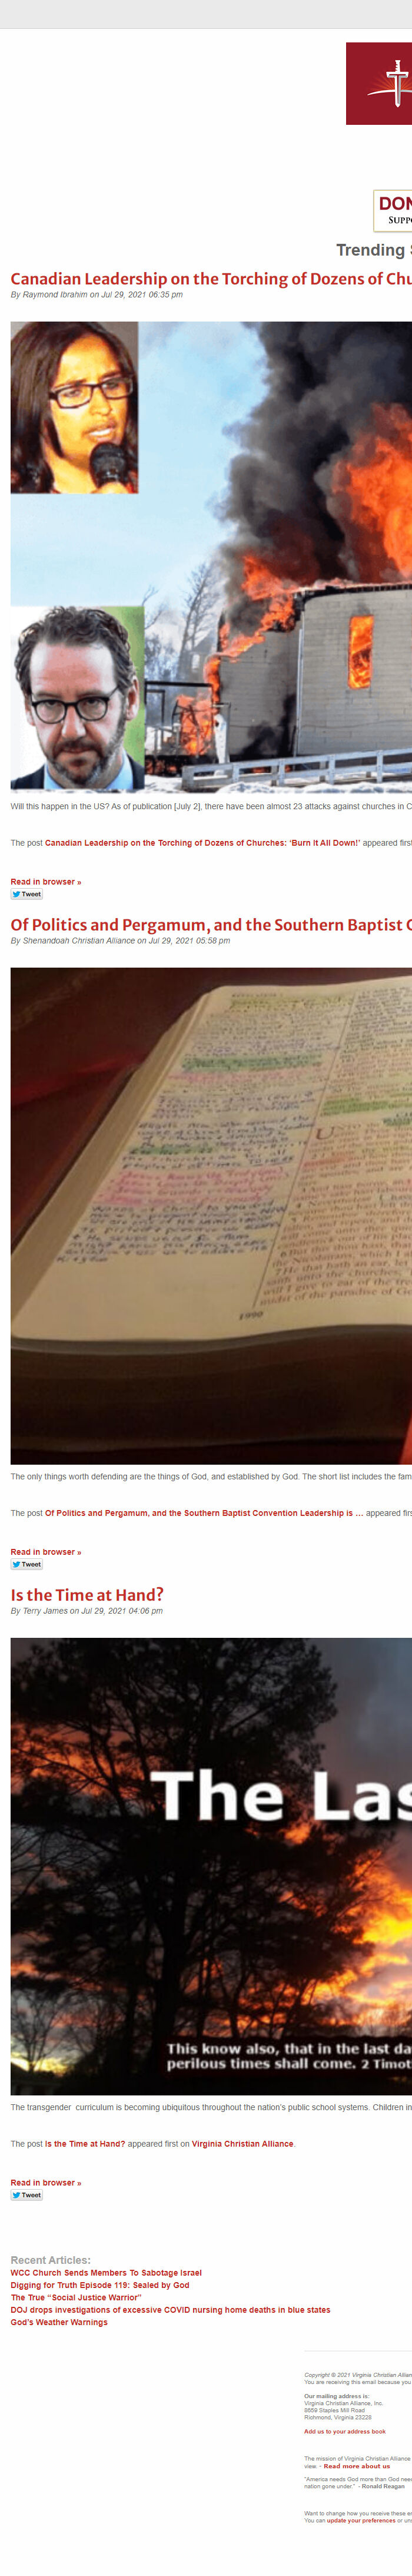 DON
SUPP
Trending S
Canadian Leadership on the Torching of Dozens of Chu
By Raymond Ibrahim on Jul 29, 2021 06:35 pm
Will this happen in the US? As of publication [July 2], there have been almost 23 attacks against churches in C
The post Canadian Leadership on the Torching of Dozens of Churches: ‘Burn It All Down!’ appeared first
Read in browser »
Tweet
Of Politics and Pergamum, and the Southern Baptist C
By Shenandoah Christian Alliance on Jul 29, 2021 05:58 pm
1990
The only things worth defending are the things of God, and established by God. The short list includes the fam
The post Of Politics and Pergamum, and the Southern Baptist Convention Leadership is … appeared firs
Read in browser »
Tweet
Is the Time at Hand?
By Terry James on Jul 29, 2021 04:06 pm
The Las
This know also, that in the last da
perilous times shall come. 2 Timot
The transgender  curriculum is becoming ubiquitous throughout the nation's public school systems. Children in
The post Is the Time at Hand? appeared first on Virginia Christian Alliance.
Read in browser »
Tweet
Recent Articles:
WCC Church Sends Members To Sabotage Israel
Digging for Truth Episode 119: Sealed by God
The True “Social Justice Warrior”
DOJ drops investigations of excessive COVID nursing home deaths in blue states
God’s Weather Warnings
Copyright © 2021 Virginia Christian Allian
You are receiving this email because you
Our mailing address is:
Virginia Christian Alliance, Inc.
8659 Staples Mill Road
Richmond, Virginia 23228
Add us to your address book
The mission of Virginia Christian Alliance
view. - Read more about us
"America needs God more than God nee
nation gone under."  - Ronald Reagan
Want to change how you receive these e
You can update your preferences or un